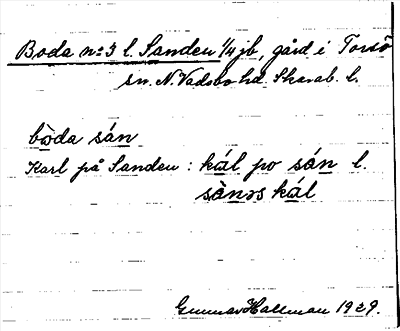 Boda n:o 3 l. Sanden 1/4 jb, gård i Torsö
sn. N. Vadsbo hd. Skarab. l.
bòda sán
Karl på Sanden : kál po sán l.
sànəs kál
Gunnar Hallman 1929.